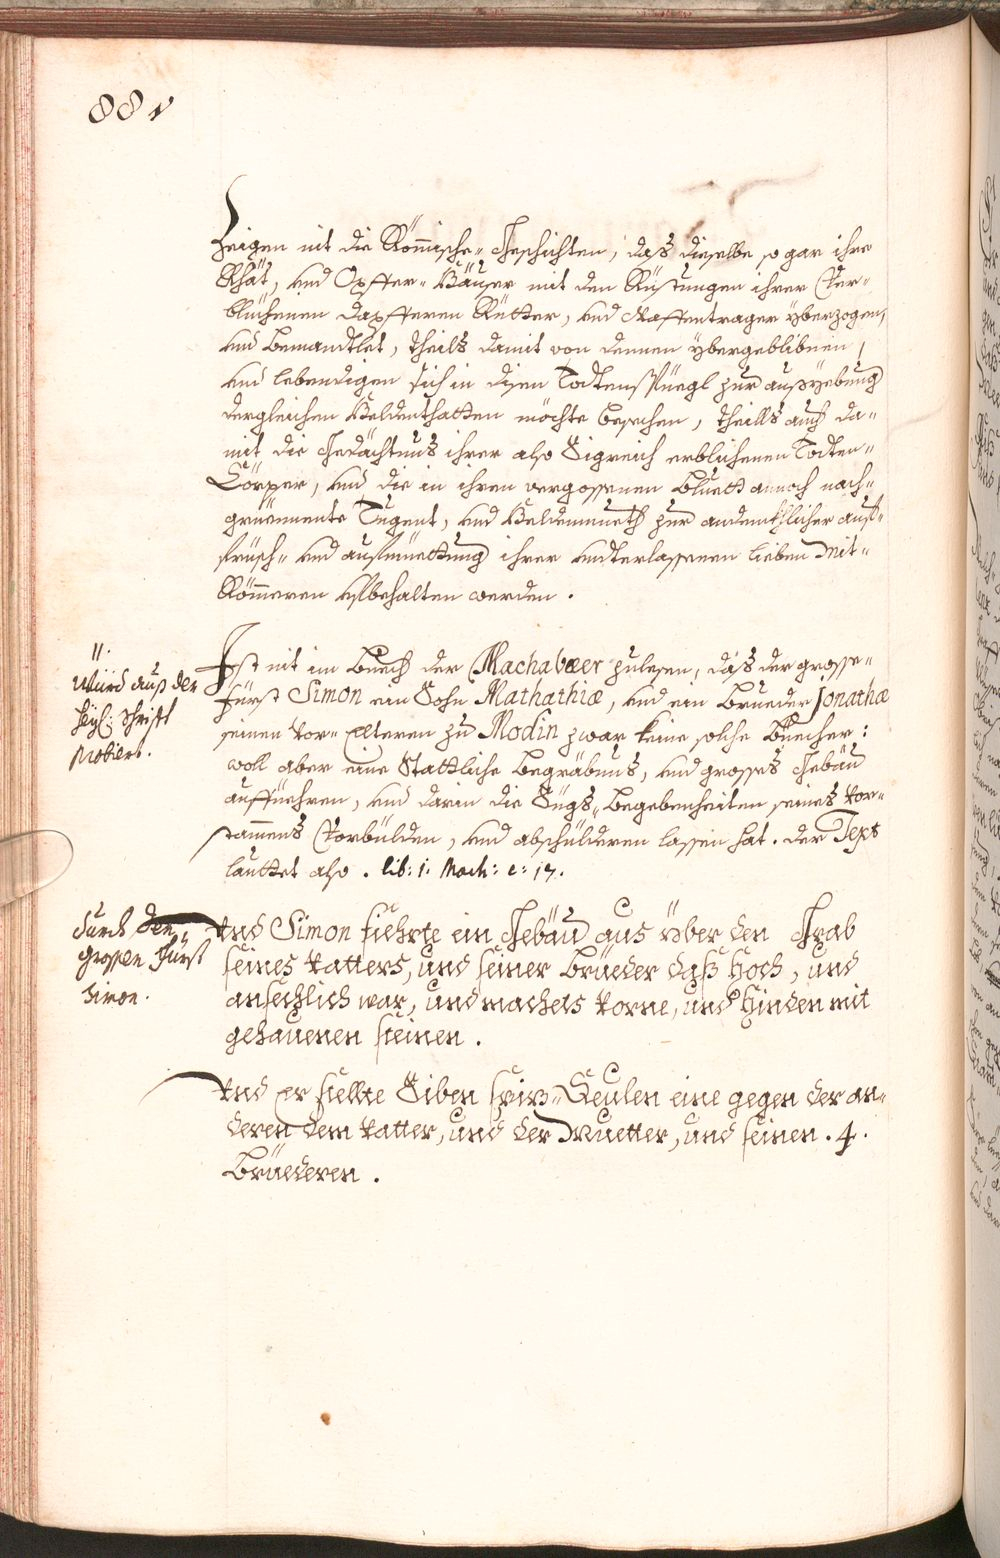 88v
Zeigen nit die Römische- Geschichten, das dieselbe so gar ihre
Rhät, und Opffer- Häuser mit den Rüstungen ihrer Ver-
blichenen dapfferen Ritter, und Waffentrager yberzogen,
und bemandtlet, theils damit von dennen ybergeblibnen,
und lebendigen sich in disen Todtenspüegl zur außyebung
dergleichen Heldenthatten möchte besechen, theills auch da-
mit die Gedächtnus ihrer also Sigreich erblichenen Todten-
Cörper, und die in ihren vergossenen Bluett annoch nach-
gruennente Tugent, und Heldenmueth zur andenckhlicher auf-
früsch- und aufmuettung ihrer hinterlassenen lieben Mit-
Römmeren beybehalten werden.
11.
Würd auß der
heyl: schrifft
Probiert.
Ist nit im Buech der Machabæer zulesen, das der grosse-
Fürst Simon ein Sohn Mathathiæ, und ein Brueder Jonathæ
seinen Vor- Elteren zu Modin zwar keine solche Büecher:
woll aber eine Stattliche Begräbnus, und grosses Gebäu
aufführen, und darin die Sügs- Begebenheiten seines Vor-
stammens Vorbülden, und abschülderen lassen hat. der Text
lauttet also. lib: 1. Mach: c: 13.
durch den
grossen Fürst
Simon.
Und Simon fiehrte ein Gebäu aus yber den Grab
seines Vatters, und seiner Brüeder daß hoch, und
ansechlich war, und machets Vorne, und hinden mit
gehauenen steinen.
Und Er stellte Siben spiz- Seulen eine gegen der an-
deren dem Vatter, und der Muetter, und seinen .4.
Brüederen.